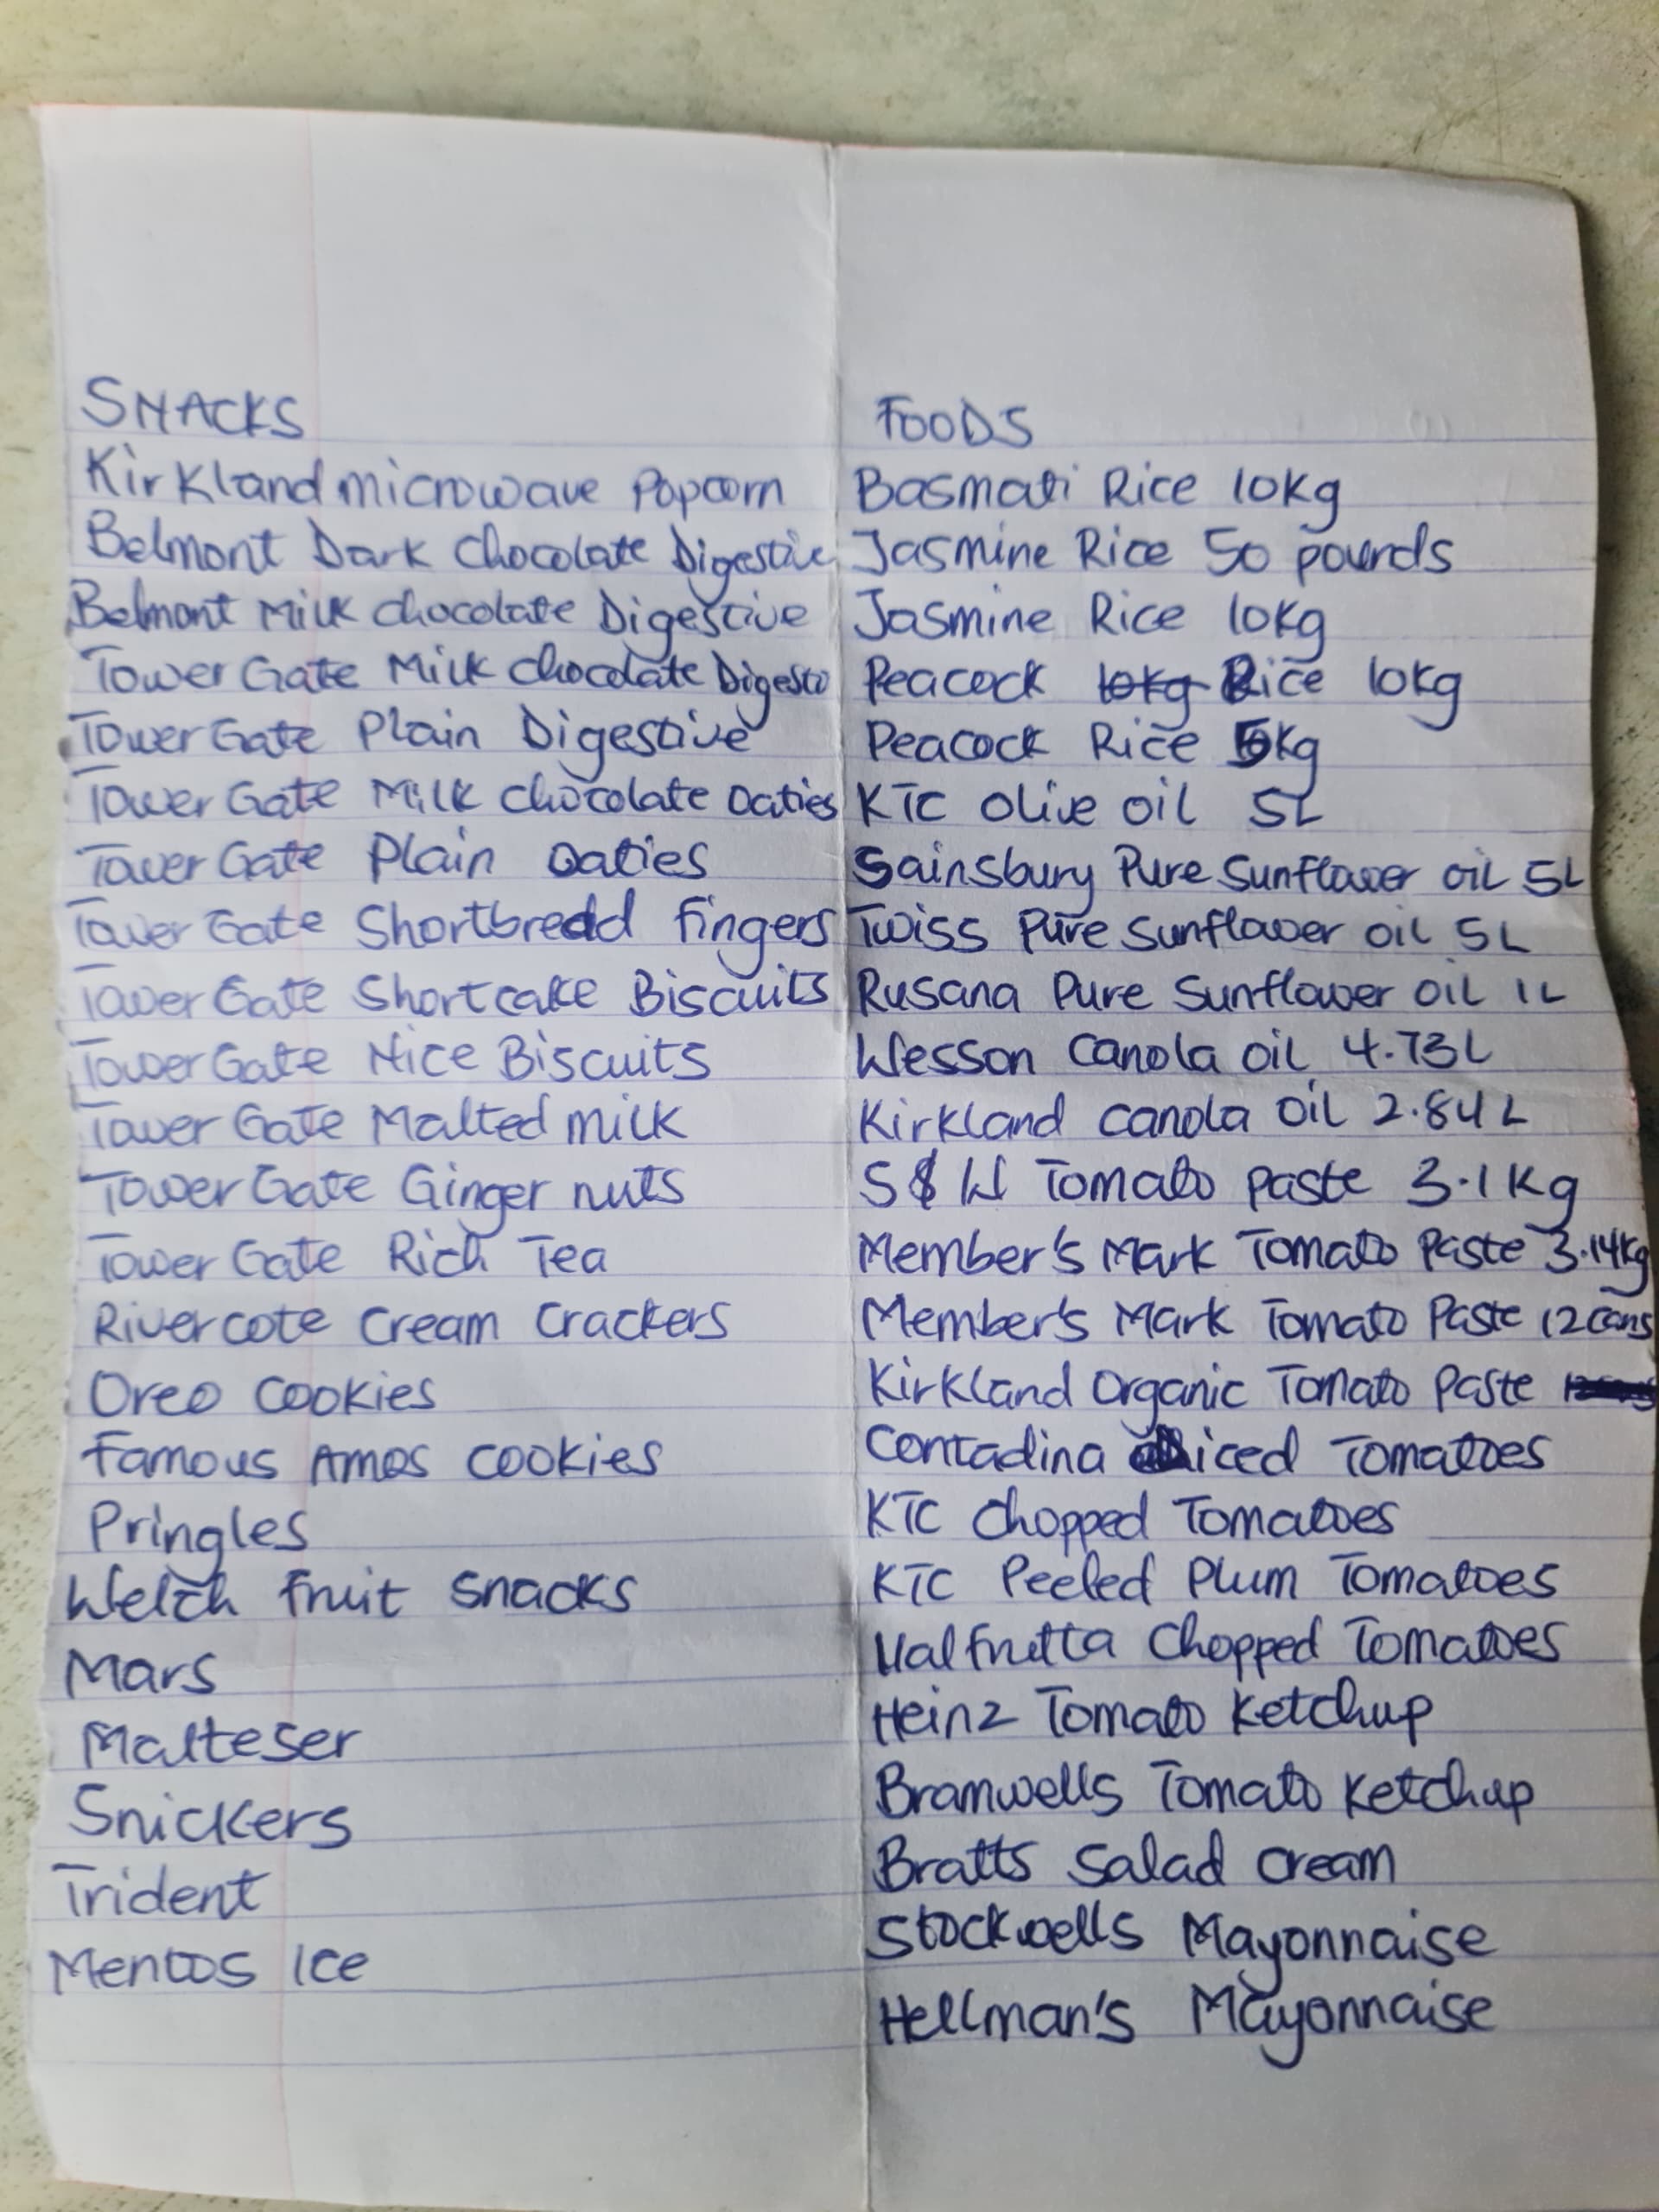 SNACKS
Kirkland microwave Popcorn
Belmont Dark Chocolate Digestive
Belmont Milk chocolate Digestive
Tower Gate Milk chocolate Digesti
Tower Gate Plain Digestive
Tower Gate Milk chocolate Oaties
Tower Gate Plain Oaties
Tower Gate Shortbread fingers
Tower Gate Shortcake Biscuits
Tower Gate Nice Biscuits
Tower Gate Malted milk
Tower Gate Ginger nuts
Tower Gate Rich Tea
Rivercote Cream Crackers
Oreo Cookies
Famous Amos cookies
Pringles
Welch fruit snacks
Mars
Malteser
Snickers
Trident
Mentos Ice
FOODS
Basmati Rice 10kg
Jasmine Rice 50 pounds
Jasmine Rice 10kg
Peacock 10kg Rice 10kg
Peacock Rice 5kg
KTC Olive oil 5L
Sainsbury Pure Sunflower oil 5L
Twiss Pure Sunflower oil 5L
Rusana Pure Sunflower oil 1L
Wesson Canola oil 4.73L
Kirkland canola oil 2.84L
S&W Tomato paste 3.1Kg
Member's Mark Tomato Paste 3.14kg
Member's Mark Tomato Paste 12 cans
Kirkland Organic Tomato Paste
Contadina Diced Tomatoes
KTC Chopped Tomatoes
KTC Peeled Plum Tomatoes
Valfrutta Chopped Tomatoes
Heinz Tomato Ketchup
Bramwells Tomato Ketchup
Bratts Salad Cream
Stockwells Mayonnaise
Hellman's Mayonnaise